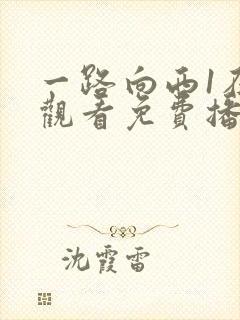 一路向西1
觀看免費播
沈霞雷